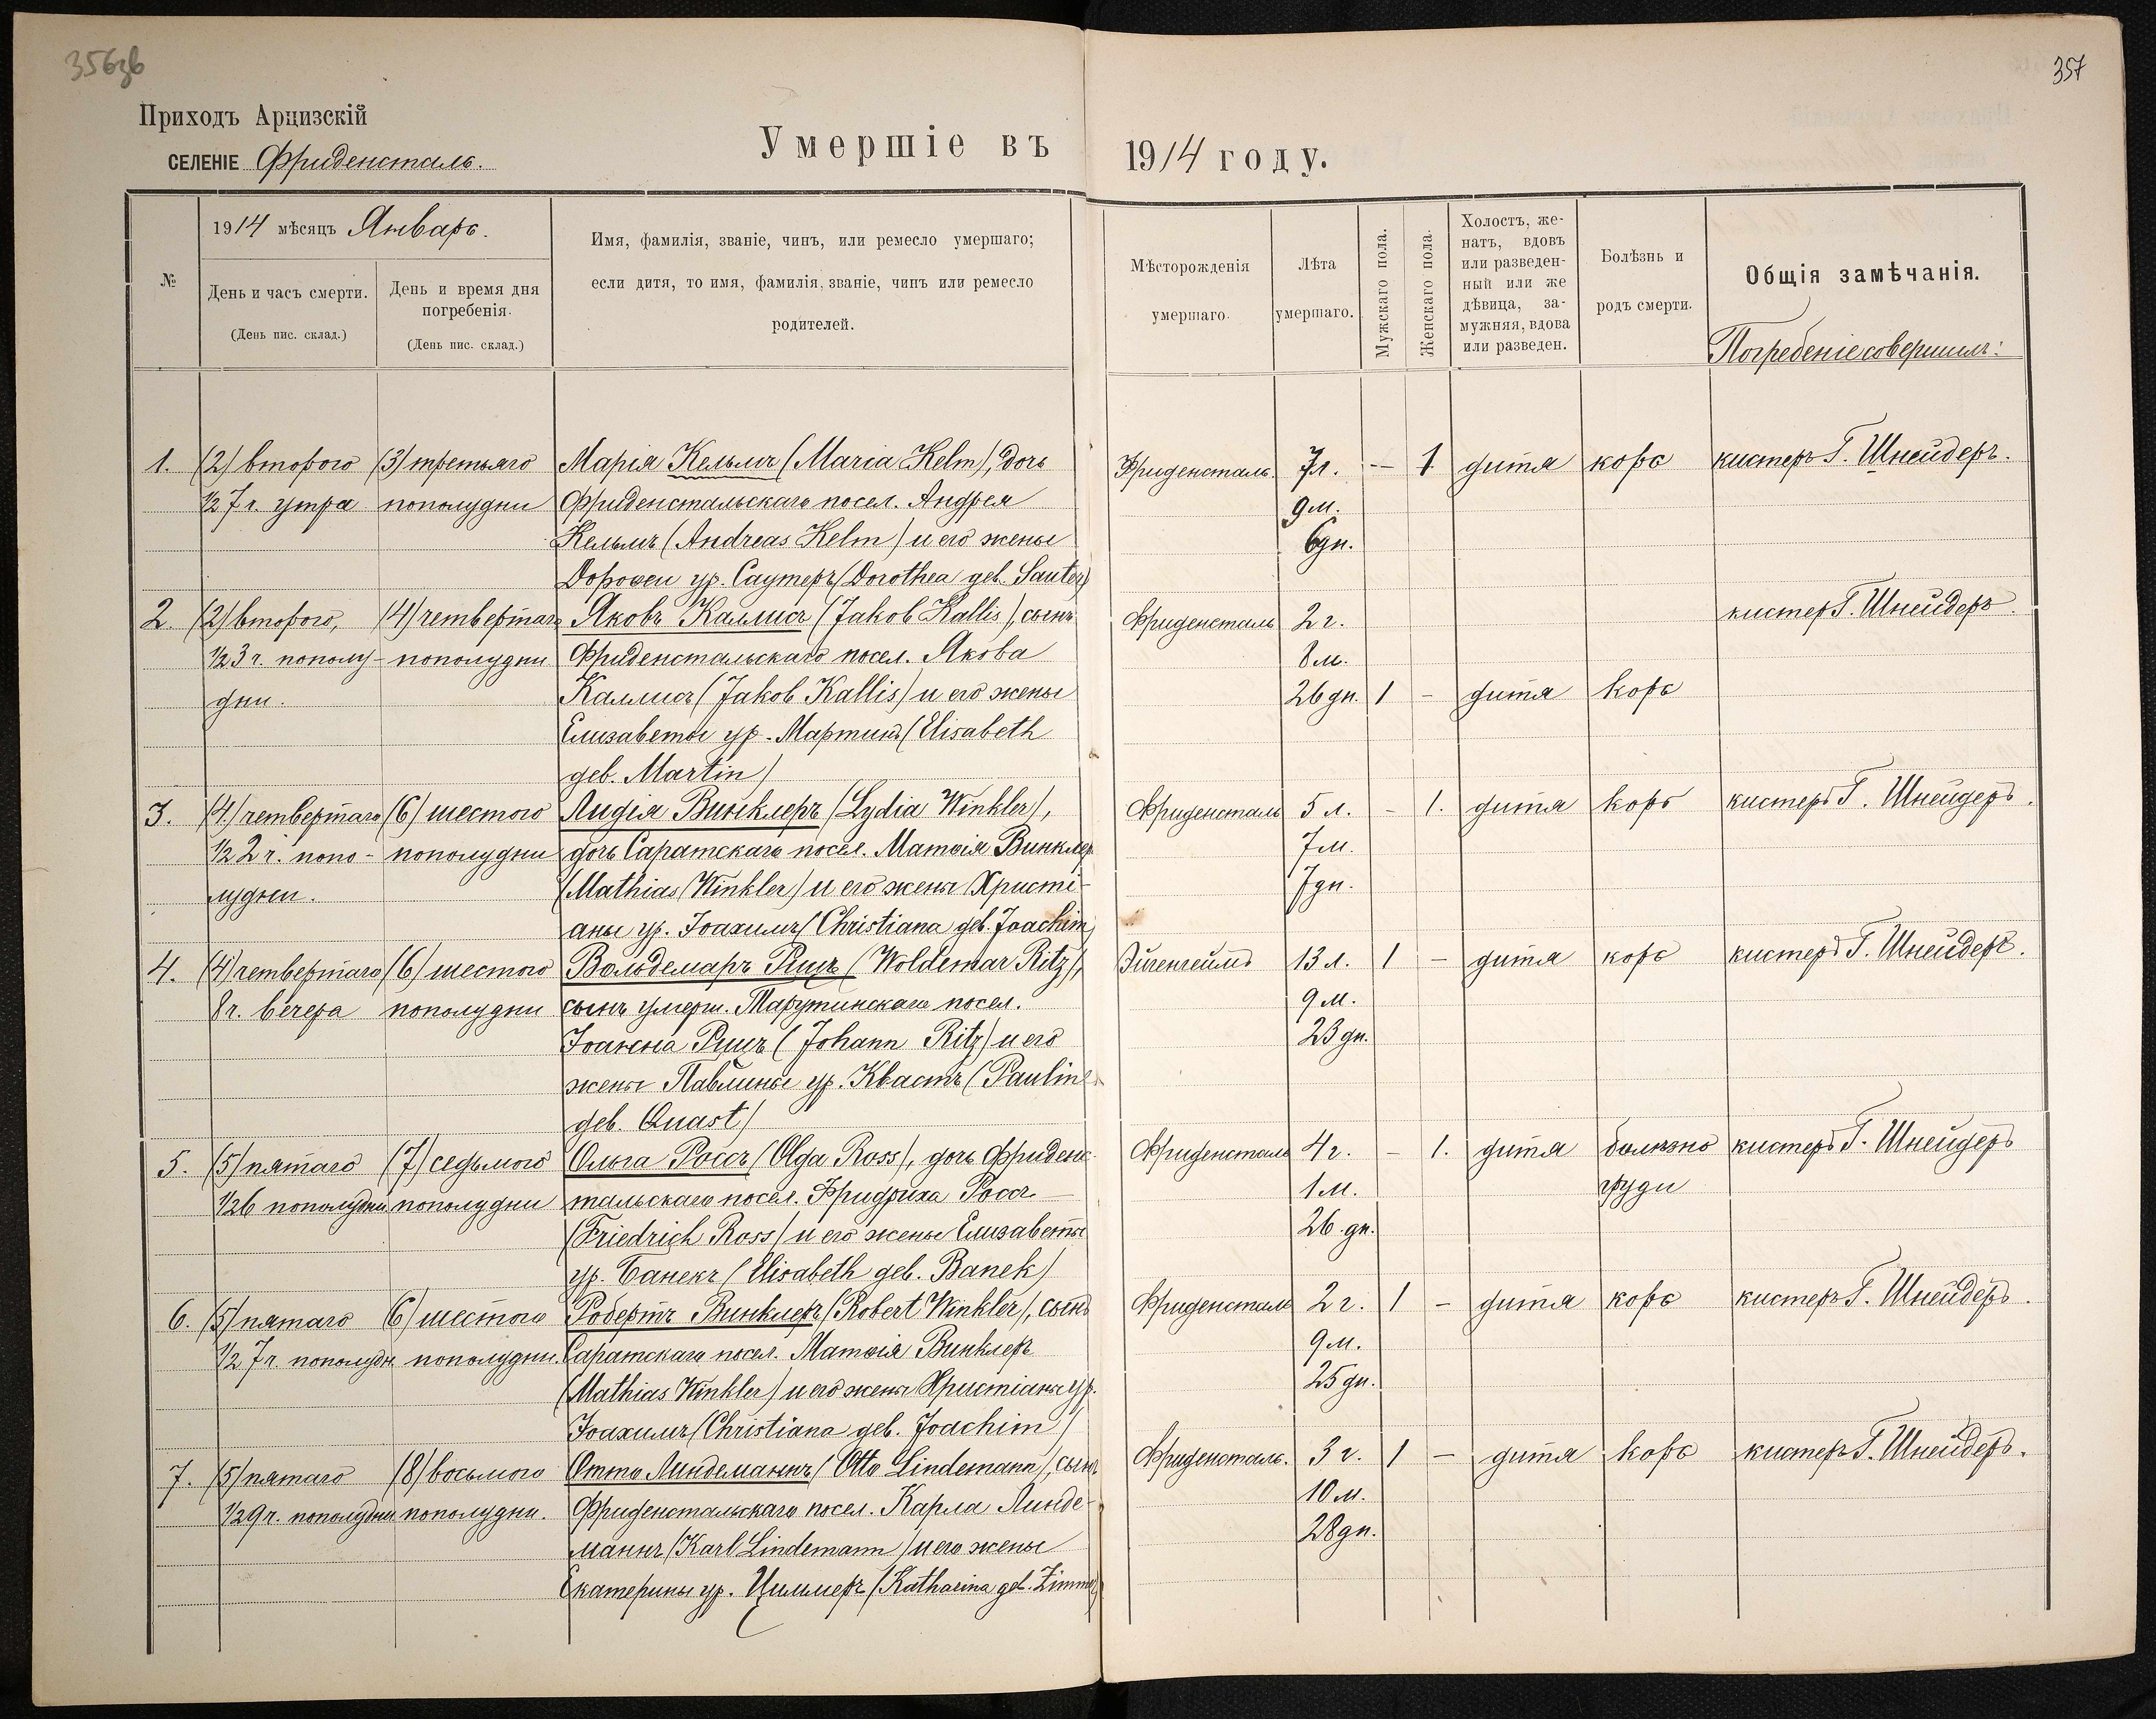 356зв
357
Приходъ Арцизскій
СЕЛЕНІЕ Фриденсталь.
Умершіе въ 1914 году.
№
1914 мѣсяцъ Январь.
День и часъ смерти.
(День пис. склад.)
День и время дня
погребенія.
(День пис. склад.)
Имя, фамилія, званіе, чинъ, или ремесло умершаго;
если дитя, то имя, фамилія, званіе, чинъ или ремесло
родителей.
Мѣсторожденія
умершаго.
Лѣта
умершаго.
Мужскаго пола.
Женскаго пола.
Холостъ, же-
натъ, вдовъ
или разведен-
ный или же
дѣвица, за-
мужняя, вдова
или разведен.
Болѣзнь и
родъ смерти.
Общія замѣчанія.
Погребеніе совершилъ:
1. (2) второго (3) третьяго Марія Кельмъ (Maria Kelm), дочь Фриденсталь. 7 л. — 1 дитя корь кистеръ Г. Шнейдеръ.
½ 7 ч. утра пополудни Фриденстальскаго посел. Андрея 9 м.
Кельмъ (Andreas Kelm) и его жены 6 дн.
Доротеи ур. Саутеръ (Dorothea geb. Sauter)
2. (2) второго, (4) четвертаго Яковъ Каллисъ (Jakob Kallis), сынъ Фриденсталь 2 г. кистеръ Г. Шнейдеръ.
½ 3 ч. пополу- пополудни Фриденстальскаго посел. Якова 8 м.
дни. Каллисъ (Jakob Kallis) и его жены 26 дн. 1 - дитя корь
Елизаветы ур. Мартинъ (Elisabeth
geb. Martin)
3. (4) четвертаго (6) шестого Лидія Винклеръ (Lydia Winkler), Фриденсталь 5 л. - 1. дитя корь кистеръ Г. Шнейдеръ.
½ 2 ч. попо- пополудни дочь Саратскаго посел. Матѳія Винклеръ 7 м.
лудни. (Mathias Winkler) и его жены Христі- 7 дн.
аны ур. Іоахимъ (Christiana geb. Joachim)
4. (4) четвертаго (6) шестого Вольдемаръ Рицъ (Woldemar Ritz), Эйгенгеймъ 13 л. 1 - дитя корь кистеръ Г. Шнейдеръ.
8 ч. вечера пополудни сынъ умерш. Тарутинскаго посел. 9 м.
Іоанна Рицъ (Johann Ritz) и его 23 дн.
жены Павлины ур. Квастъ (Pauline
geb. Quast)
5. (5) пятаго (7) седьмого Ольга Россъ (Olga Ross), дочь Фриденс- Фриденсталь 4 г. - 1. дитя болѣзнь кистеръ Г. Шнейдеръ
½6 пополудни пополудни тальскаго посел. Фридриха Россъ 1 м. груди
(Friedrich Ross) и его жены Елизаветы 26 дн.
ур. Банекъ (Elisabeth geb. Banek)
6. (5) пятаго (6) шестого Робертъ Винклеръ (Robert Winkler), сынъ Фриденсталь 2 г. 1 - дитя корь кистеръ Г. Шнейдеръ.
½ 7 ч. пополудн пополудни. Саратскаго посел. Матѳія Винклеръ 9 м.
(Mathias Winkler) и его жены Христіаны ур. 25 дн.
Іоахимъ (Christiana geb. Joachim)
7. (5) пятаго (8) восьмого Отто Линдеманнъ (Otto Lindemann), сынъ Фриденсталь. 3 г. 1 - дитя корь кистеръ Г. Шнейдеръ.
½ 9 ч. пополудни пополудни. Фриденстальскаго посел. Карла Линде- 10 м.
маннъ (Karl Lindemann) и его жены 28 дн.
Екатерины ур. Циммеръ (Katharina geb. Zimmer)